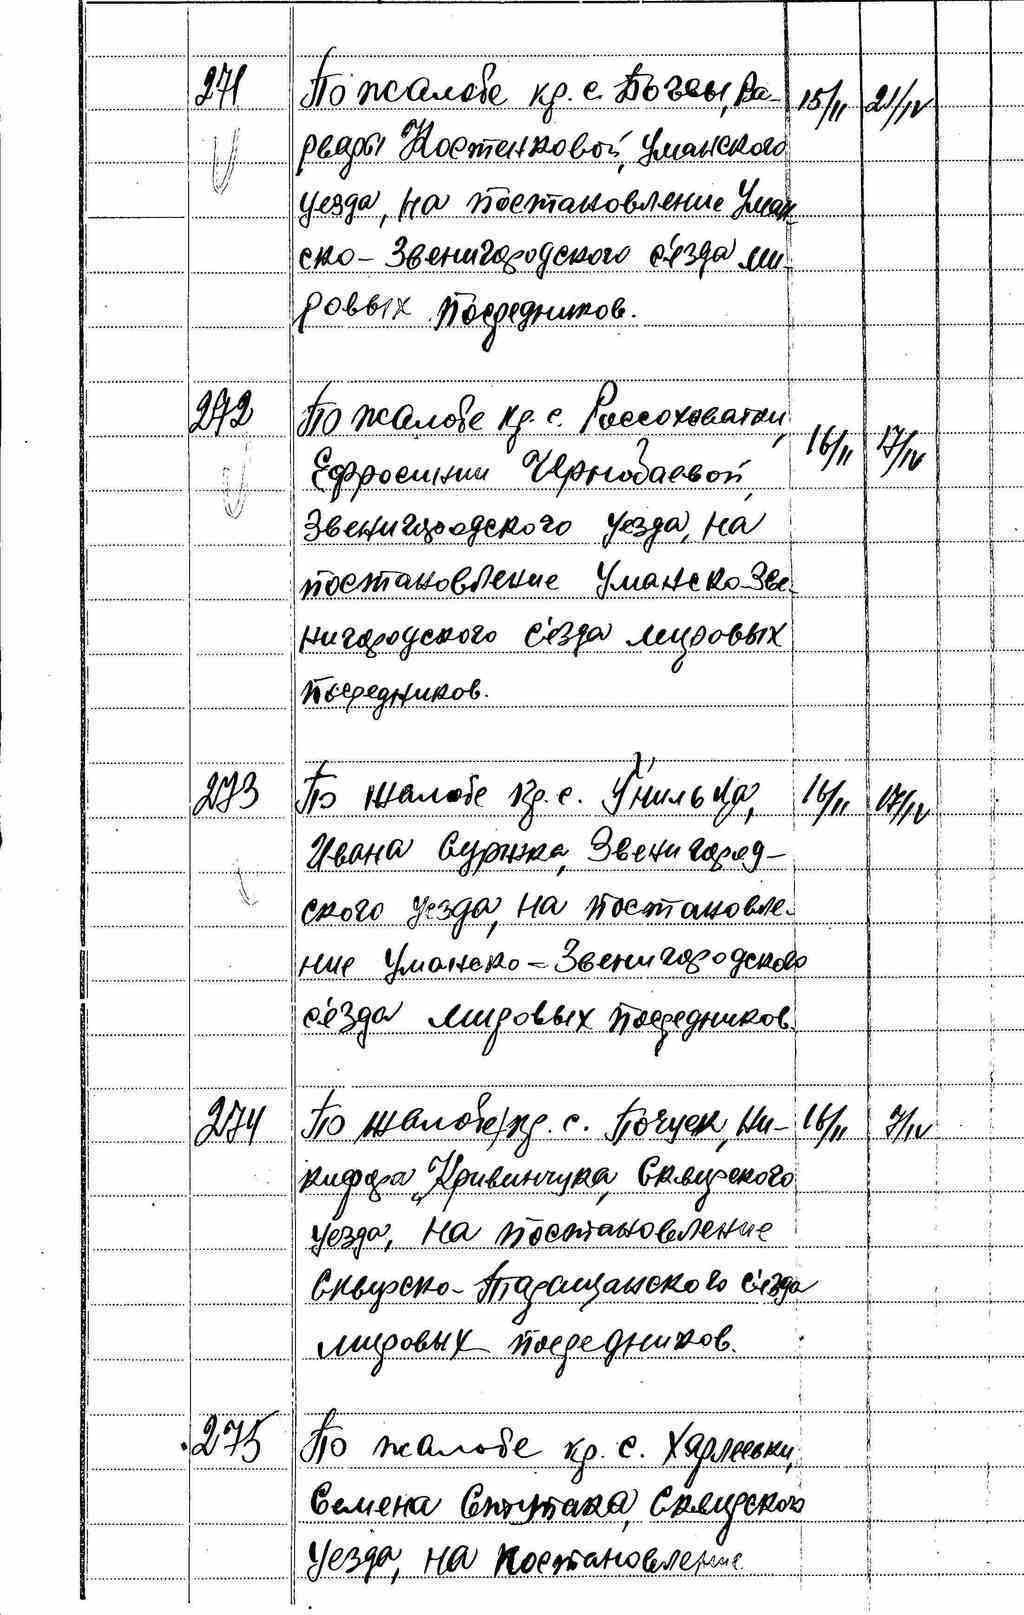 271 По жалобе кр. с. 15/II 21/IV
Костенковой, Уманского
уезда, на постановление Уман-
ско-Звенигородского с'езда ми-
ровых посредников.
272 По жалобе кр. с. Россоховатки, 16/II 17/IV
Ефросинии Чернобаевой,
Звенигородского уезда, на
постановление Уманско-Зве-
нигородского с'езда мировых
посредников.
273 По жалобе кр. с. 16/II 17/IV
Ивана Суржка, Звенигород-
ского уезда, на постановле-
ние Уманско-Звенигородского
с'езда мировых посредников.
274 По жалобе кр. с. Почуек, Ни- 16/II 7/IV
кифора Кривинчука, Сквирского
уезда, на постановление
Сквирско-Таращанского с'езда
мировых посредников.
275 По жалобе кр. с. Харлеевки,
Семена Сквирского
уезда, на постановление